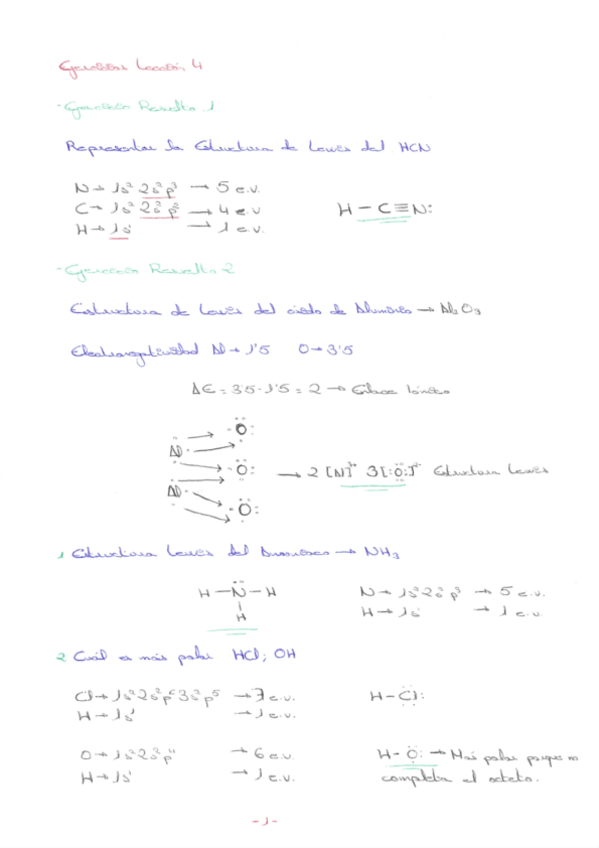 Ejercicios Lección 4
- Ejercicio Resuelto 1
Representar la Estructura de Lewis del HCN
N → 1s² 2s² p³ → 5 e.v.
C → 1s² 2s² p² → 4 e.v
H → 1s¹ → 1 e.v.
H – C ≡ N:
- Ejercicio Resuelto 2
Estructura de Lewis del óxido de Aluminio → Al₂O₃
Electronegatividad Al → 1'5 O → 3'5
ΔE = 3'5 - 1'5 = 2 → Enlace Iónico
Al Al O O O
→ 2 [Al]³⁺ 3[:Ö:]²⁻ Estructura Lewis
1 Estructura Lewis del Amoniaco → NH₃
H – N – H
H
N → 1s² 2s² p³ → 5 e.v.
H → 1s¹ → 1 e.v.
2 Cuál es más polar HCl; OH
Cl → 1s² 2s² p⁶ 3s² p⁵ → 7 e.v.
H → 1s¹ → 1 e.v.
H – Cl:
O → 1s² 2s² p⁴ → 6 e.v.
H → 1s¹ → 1 e.v.
H – O: → Más polar porque no
completa el octeto.
- 1 -